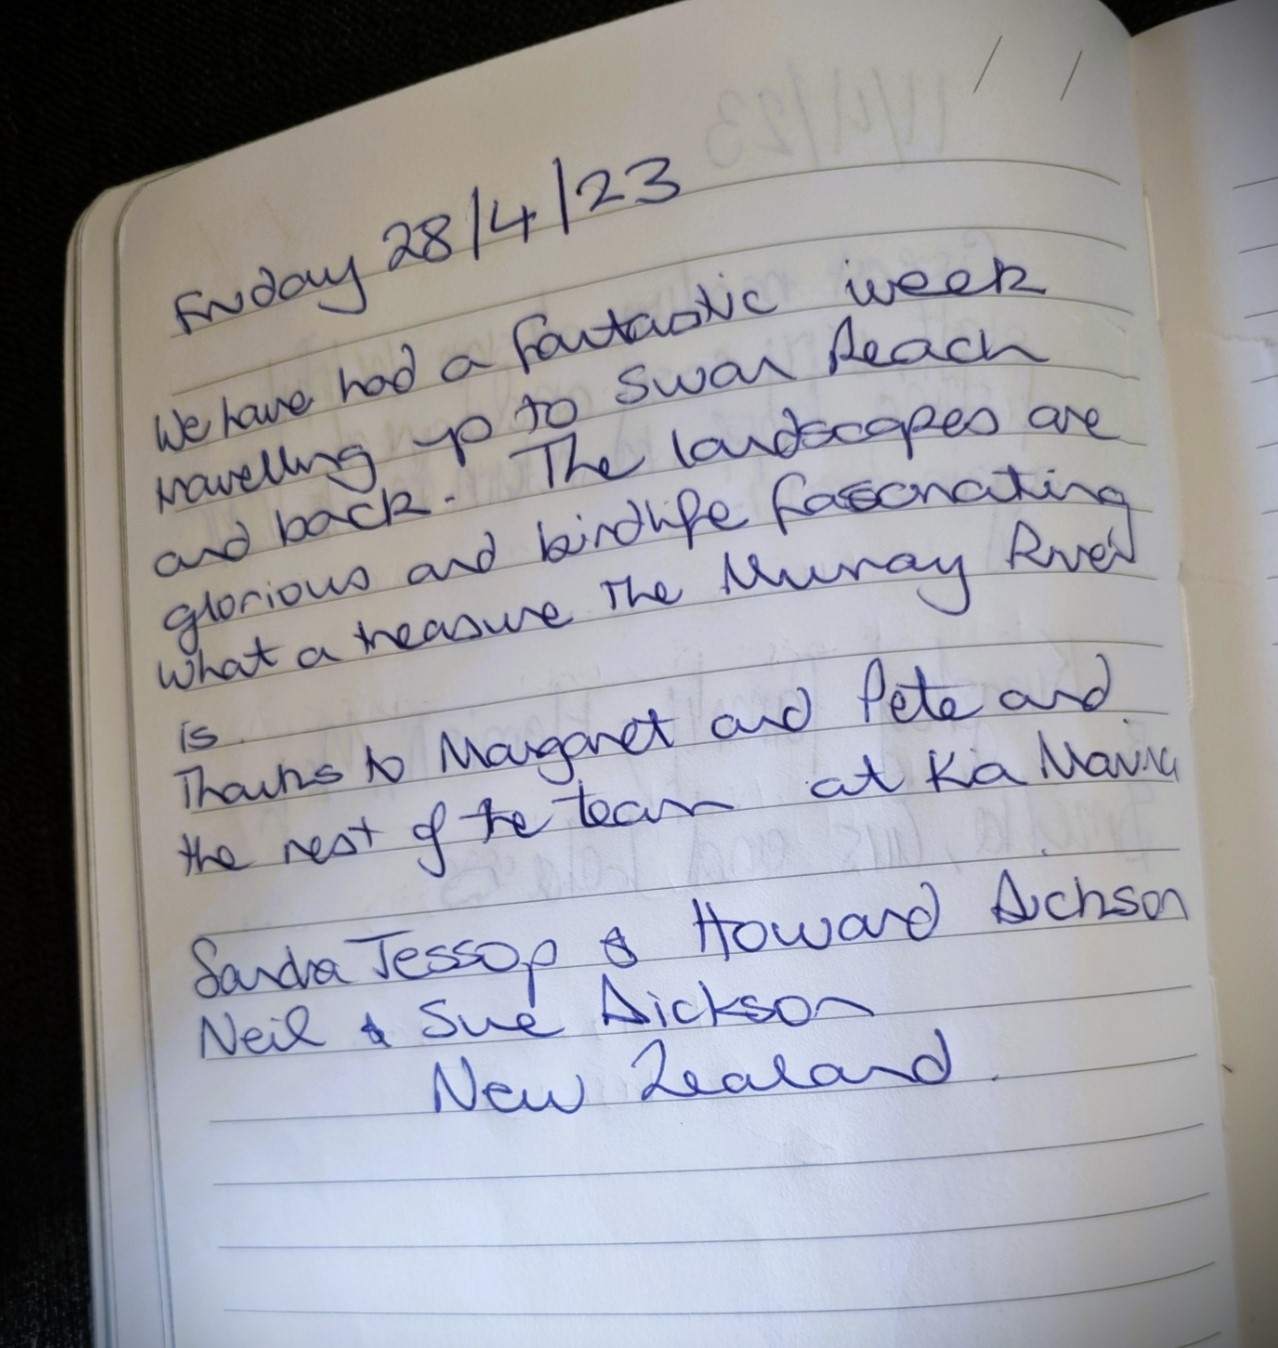 Friday 28/4/23
We have had a fantastic week
travelling up to Swan Reach
and back. The landscapes are
glorious and birdlife fascinating
What a treasure the Murray River
is.
Thanks to Margaret and Pete and
the rest of the team at Kia Marina
Sandra Tessop & Howard Dickson
Neil & Sue Dickson
New Zealand.